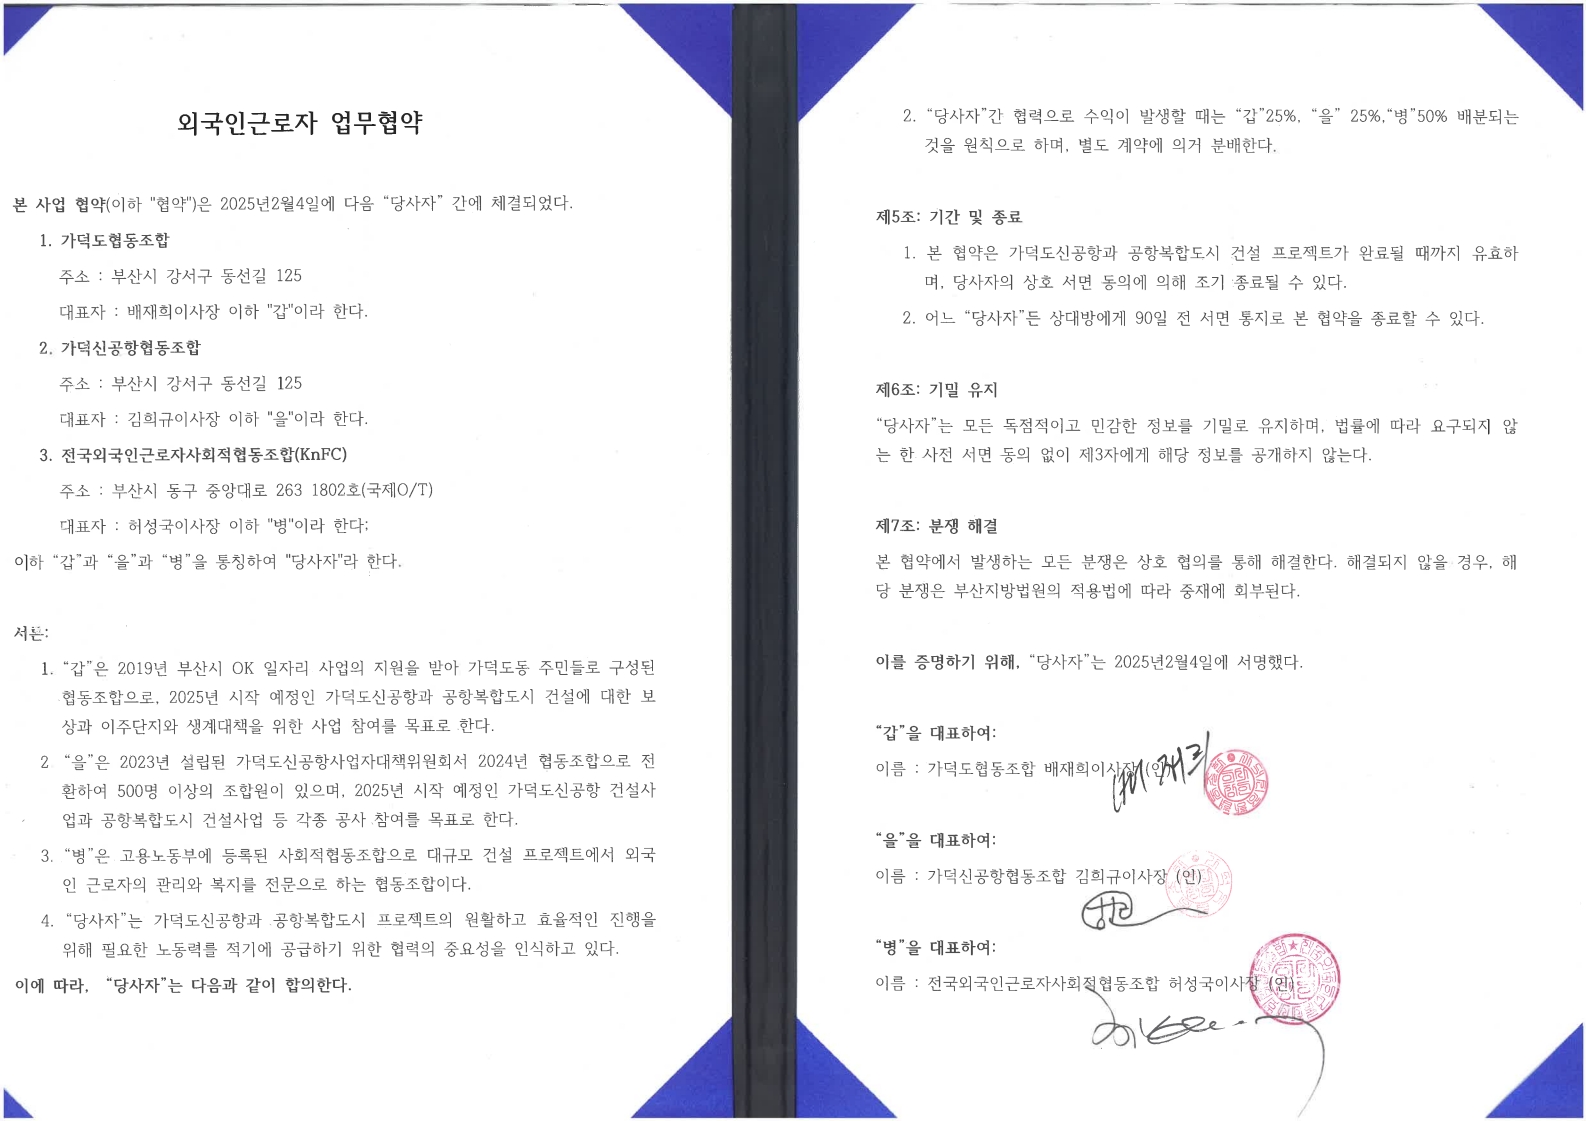 외국인근로자 업무협약
본 사업 협약(이하 "협약")은 2025년2월4일에 다음 “당사자” 간에 체결되었다.
1. 가덕도협동조합
주소 : 부산시 강서구 동선길 125
대표자 : 배재희이사장 이하 "갑"이라 한다.
2. 가덕신공항협동조합
주소 : 부산시 강서구 동선길 125
대표자 : 김희규이사장 이하 "을"이라 한다.
3. 전국외국인근로자사회적협동조합(KnFC)
주소 : 부산시 동구 중앙대로 263 1802호(국제O/T)
대표자 : 허성국이사장 이하 "병"이라 한다;
이하 “갑”과 “을”과 “병”을 통칭하여 "당사자"라 한다.
서론:
1. “갑”은 2019년 부산시 OK 일자리 사업의 지원을 받아 가덕도동 주민들로 구성된
협동조합으로, 2025년 시작 예정인 가덕도신공항과 공항복합도시 건설에 대한 보
상과 이주단지와 생계대책을 위한 사업 참여를 목표로 한다.
2 “을”은 2023년 설립된 가덕도신공항사업자대책위원회서 2024년 협동조합으로 전
환하여 500명 이상의 조합원이 있으며, 2025년 시작 예정인 가덕도신공항 건설사
업과 공항복합도시 건설사업 등 각종 공사 참여를 목표로 한다.
3. “병”은 고용노동부에 등록된 사회적협동조합으로 대규모 건설 프로젝트에서 외국
인 근로자의 관리와 복지를 전문으로 하는 협동조합이다.
4. “당사자”는 가덕도신공항과 공항복합도시 프로젝트의 원활하고 효율적인 진행을
위해 필요한 노동력를 적기에 공급하기 위한 협력의 중요성을 인식하고 있다.
이에 따라, “당사자”는 다음과 같이 합의한다.
2. “당사자”간 협력으로 수익이 발생할 때는 “갑”25%, “을” 25%,“병”50% 배분되는
것을 원칙으로 하며, 별도 계약에 의거 분배한다.
제5조: 기간 및 종료
1. 본 협약은 가덕도신공항과 공항복합도시 건설 프로젝트가 완료될 때까지 유효하
며, 당사자의 상호 서면 동의에 의해 조기 종료될 수 있다.
2. 어느 “당사자”든 상대방에게 90일 전 서면 통지로 본 협약을 종료할 수 있다.
제6조: 기밀 유지
“당사자”는 모든 독점적이고 민감한 정보를 기밀로 유지하며, 법률에 따라 요구되지 않
는 한 사전 서면 동의 없이 제3자에게 해당 정보를 공개하지 않는다.
제7조: 분쟁 해결
본 협약에서 발생하는 모든 분쟁은 상호 협의를 통해 해결한다. 해결되지 않을 경우, 해
당 분쟁은 부산지방법원의 적용법에 따라 중재에 회부된다.
이를 증명하기 위해, “당사자”는 2025년2월4일에 서명했다.
“갑”을 대표하여:
이름 : 가덕도협동조합 배재희이사장 (인)
“을”을 대표하여:
이름 : 가덕신공항협동조합 김희규이사장 (인)
“병”을 대표하여:
이름 : 전국외국인근로자사회적협동조합 허성국이사장 (인)